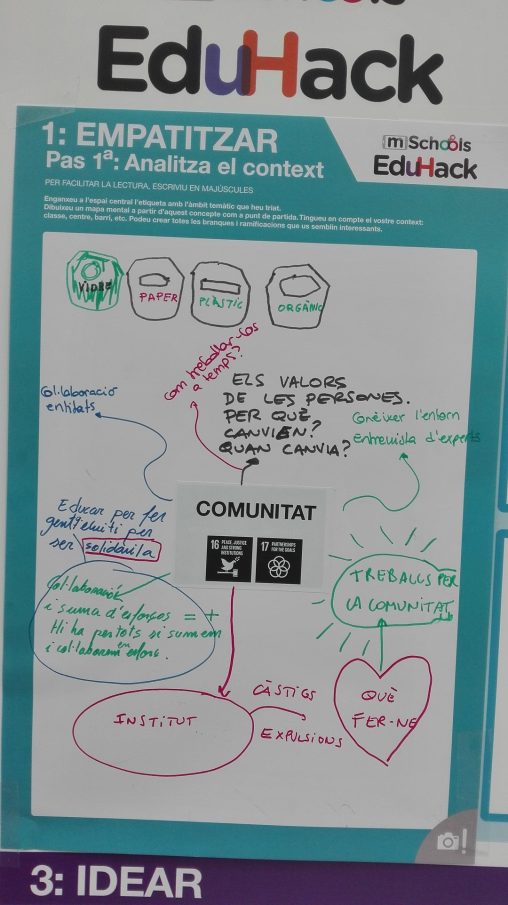 EduHack
1: EMPATITZAR
Pas 1ª: Analitza el context
mSchools
EduHack
PER FACILITAR LA LECTURA, ESCRIVIU EN MAJÚSCULES
Enganxeu a l'espai central l'etiqueta amb l'àmbit temàtic que heu triat.
Dibuixeu un mapa mental a partir d'aquest concepte com a punt de partida. Tingueu en compte el vostre context:
classe, centre, barri, etc. Podeu crear totes les branques i ramificacions que us semblin interessants.
VIDRE
PAPER
PLÀSTIC
ORGÀNIC
Com treballar-los
a temps?
ELS VALORS
DE LES PERSONES.
PER QUÈ
CANVIEN?
QUAN CANVIA?
Col·laboració
entitats
Conèixer l'entorn
Entrevista d'experts
COMUNITAT
16 PEACE, JUSTICE
AND STRONG
INSTITUTIONS
17 PARTNERSHIPS
FOR THE GOALS
Educar per fer
ser solidària
Col·laboració
i suma d'esforços = +
Hi ha per tots si sumem
i col·laborem
TREBALLS PER
LA COMUNITAT
INSTITUT
CÀSTIGS
EXPULSIONS
QUÈ
FER-NE
3: IDEAR